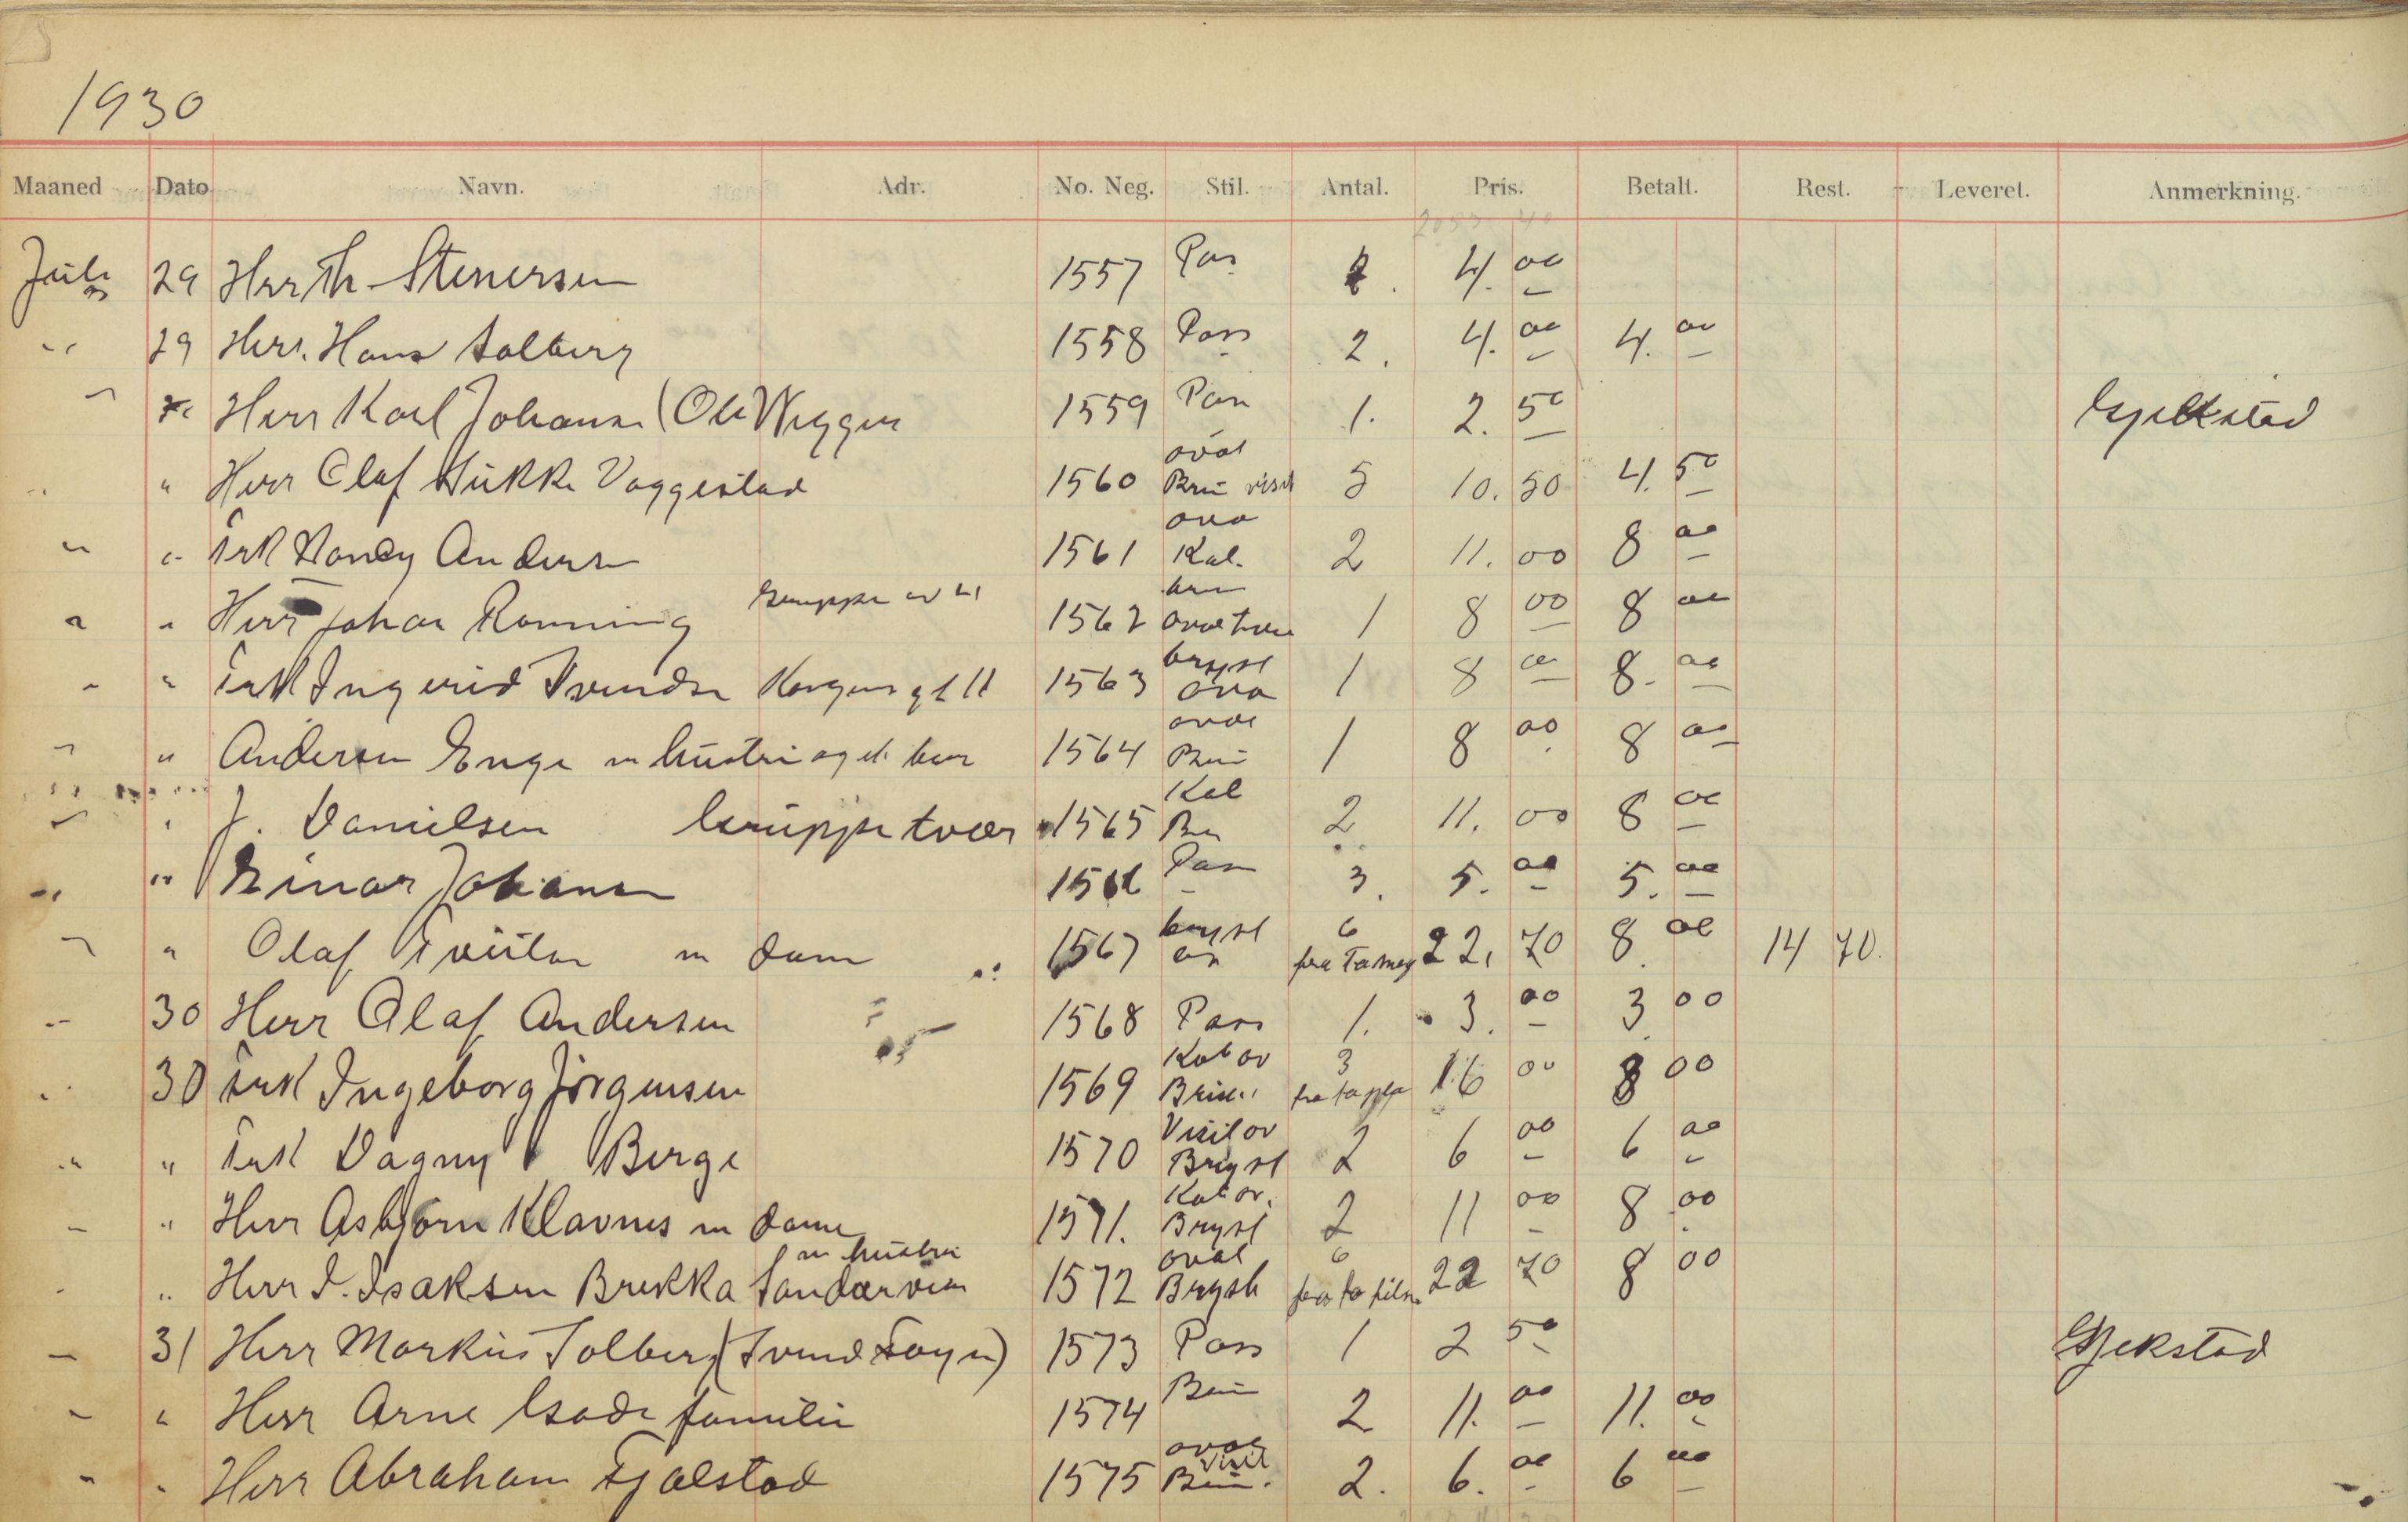 1930
Maaned Dato Navn. Adr. No. Neg. Stil. Antal. Pris. Betalt. Rest. Leveret. Anmerkning.
Juli 29 Herr Th. Stenersen 1557 Pas 2. 4. 00
" 29 Herr. Hans Solberg 1558 Pass 2. 4. 00 4. 00
" Herr Karl Johansen (Ole Wegger 1559 Pass 1. 2. 50 Gjekstad
" " Herr Olaf Hukke Vaggestad 1560 oval Brun visit 5 10. 50 4. 50
" " Frk Nancy Andersen 1561 ova Kab. 2 11. 00 8 00
" " Herr Johan Rønning Gruppe av 1562 1 8 00 8 00
" " Frk Ingerid Svendsen 1563 bryst ova 1 8 00 8. 00
" " Andersen Enge m hustru og et barn 1564 oval Brun 1 8 00 8 00
" " J. Danielsen Gruppe tvær 1565 Kab Brun 2 11. 00 8 00
" " Einar Johansen 1566 Pass 3. 5. 00 5. 00
" " Olaf m dame 1567 bryst 6 22. 70 8. 00 14 70.
" 30 Herr Olaf Andersen 1568 Pass 1. 3. 00 3. 00
" 30 Frk Ingeborg Jørgensen 1569 Kab ov Brun 3 16 00 8 00
" " Frk Dagny Berge 1570 Visit ov Bryst 2 6 00 6 00
" " Herr Asbjørn Klavnes m dame 1571. Kab ov. Bryst 2 11 00 8 00
m hustru
" " Herr I. Isaksen Brekka Sandarveien 1572 oval Bryst 6 22 70 8 00
" 31 Herr Markus Solberg (Svend Foyn) 1573 Pass 1 2 50 Gjekstad
" " Herr Arne familie 1574 Brun 2 11. 00 11. 00
" " Herr Abraham Fjælstad 1575 oval visit Brun. 2. 6. 00 6 00